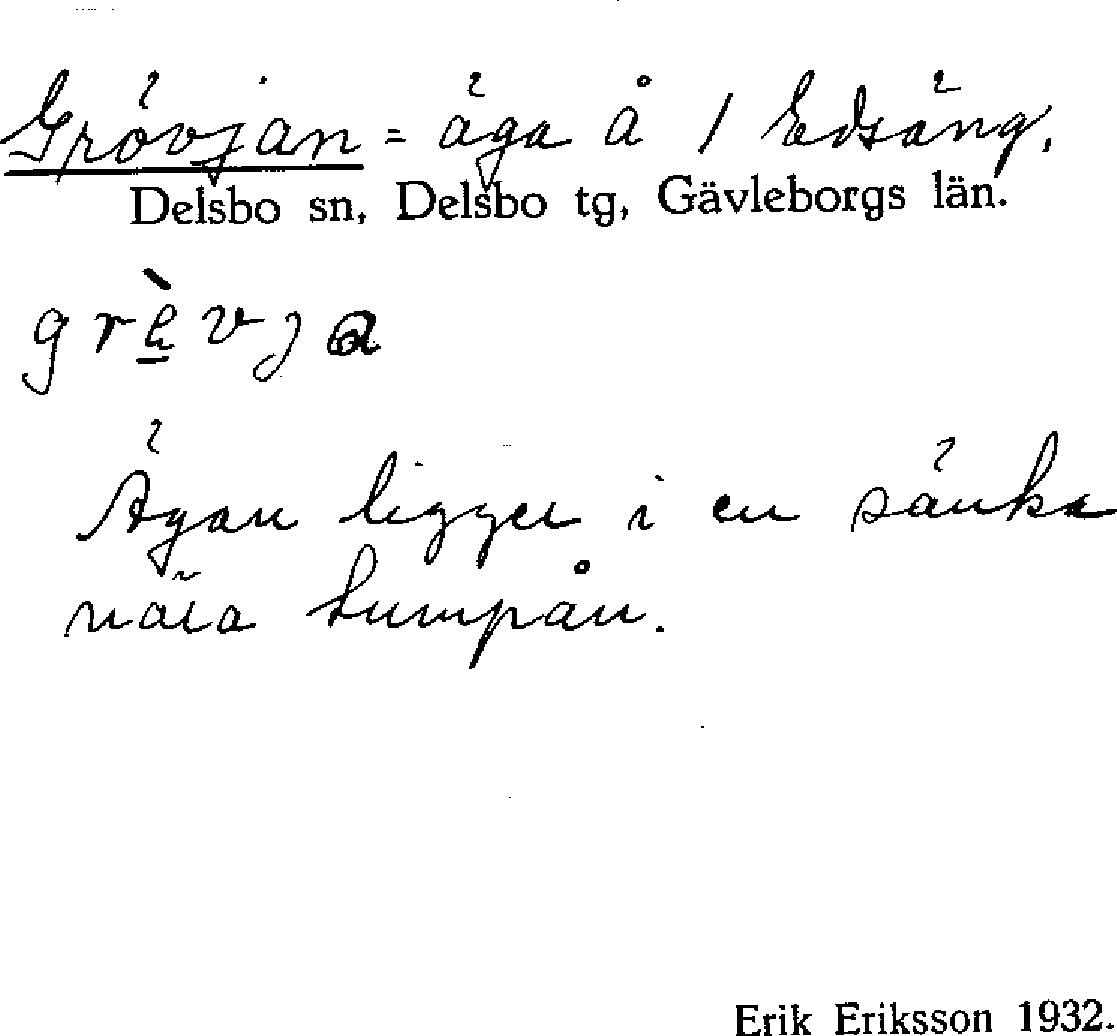 Grövjan = äga å 1 Edsäng.
Delsbo sn, Delsbo tg, Gävleborgs län.
Ägan ligger i en sänka
nära Sumpån.
Erik Eriksson 1932.